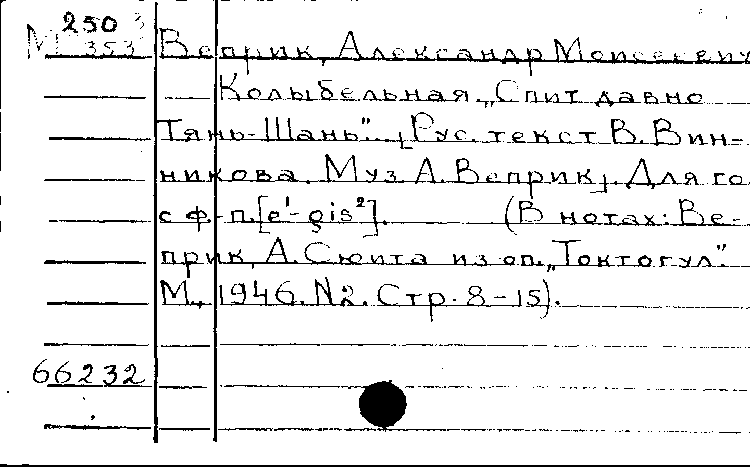 250 3
М 353
Веприк, Александр Моисеевич
Колыбельная. „Спит давно
Тянь-Шань". [Рус. текст В. Вин-
никова. Муз. А. Веприк]. Для го
с ф.-п. [e¹-gis²]. (В нотах: Ве-
прик, А. Сюита из оп. „Токтогул".
М., 1946. N2. Стр. 8-15).
66232